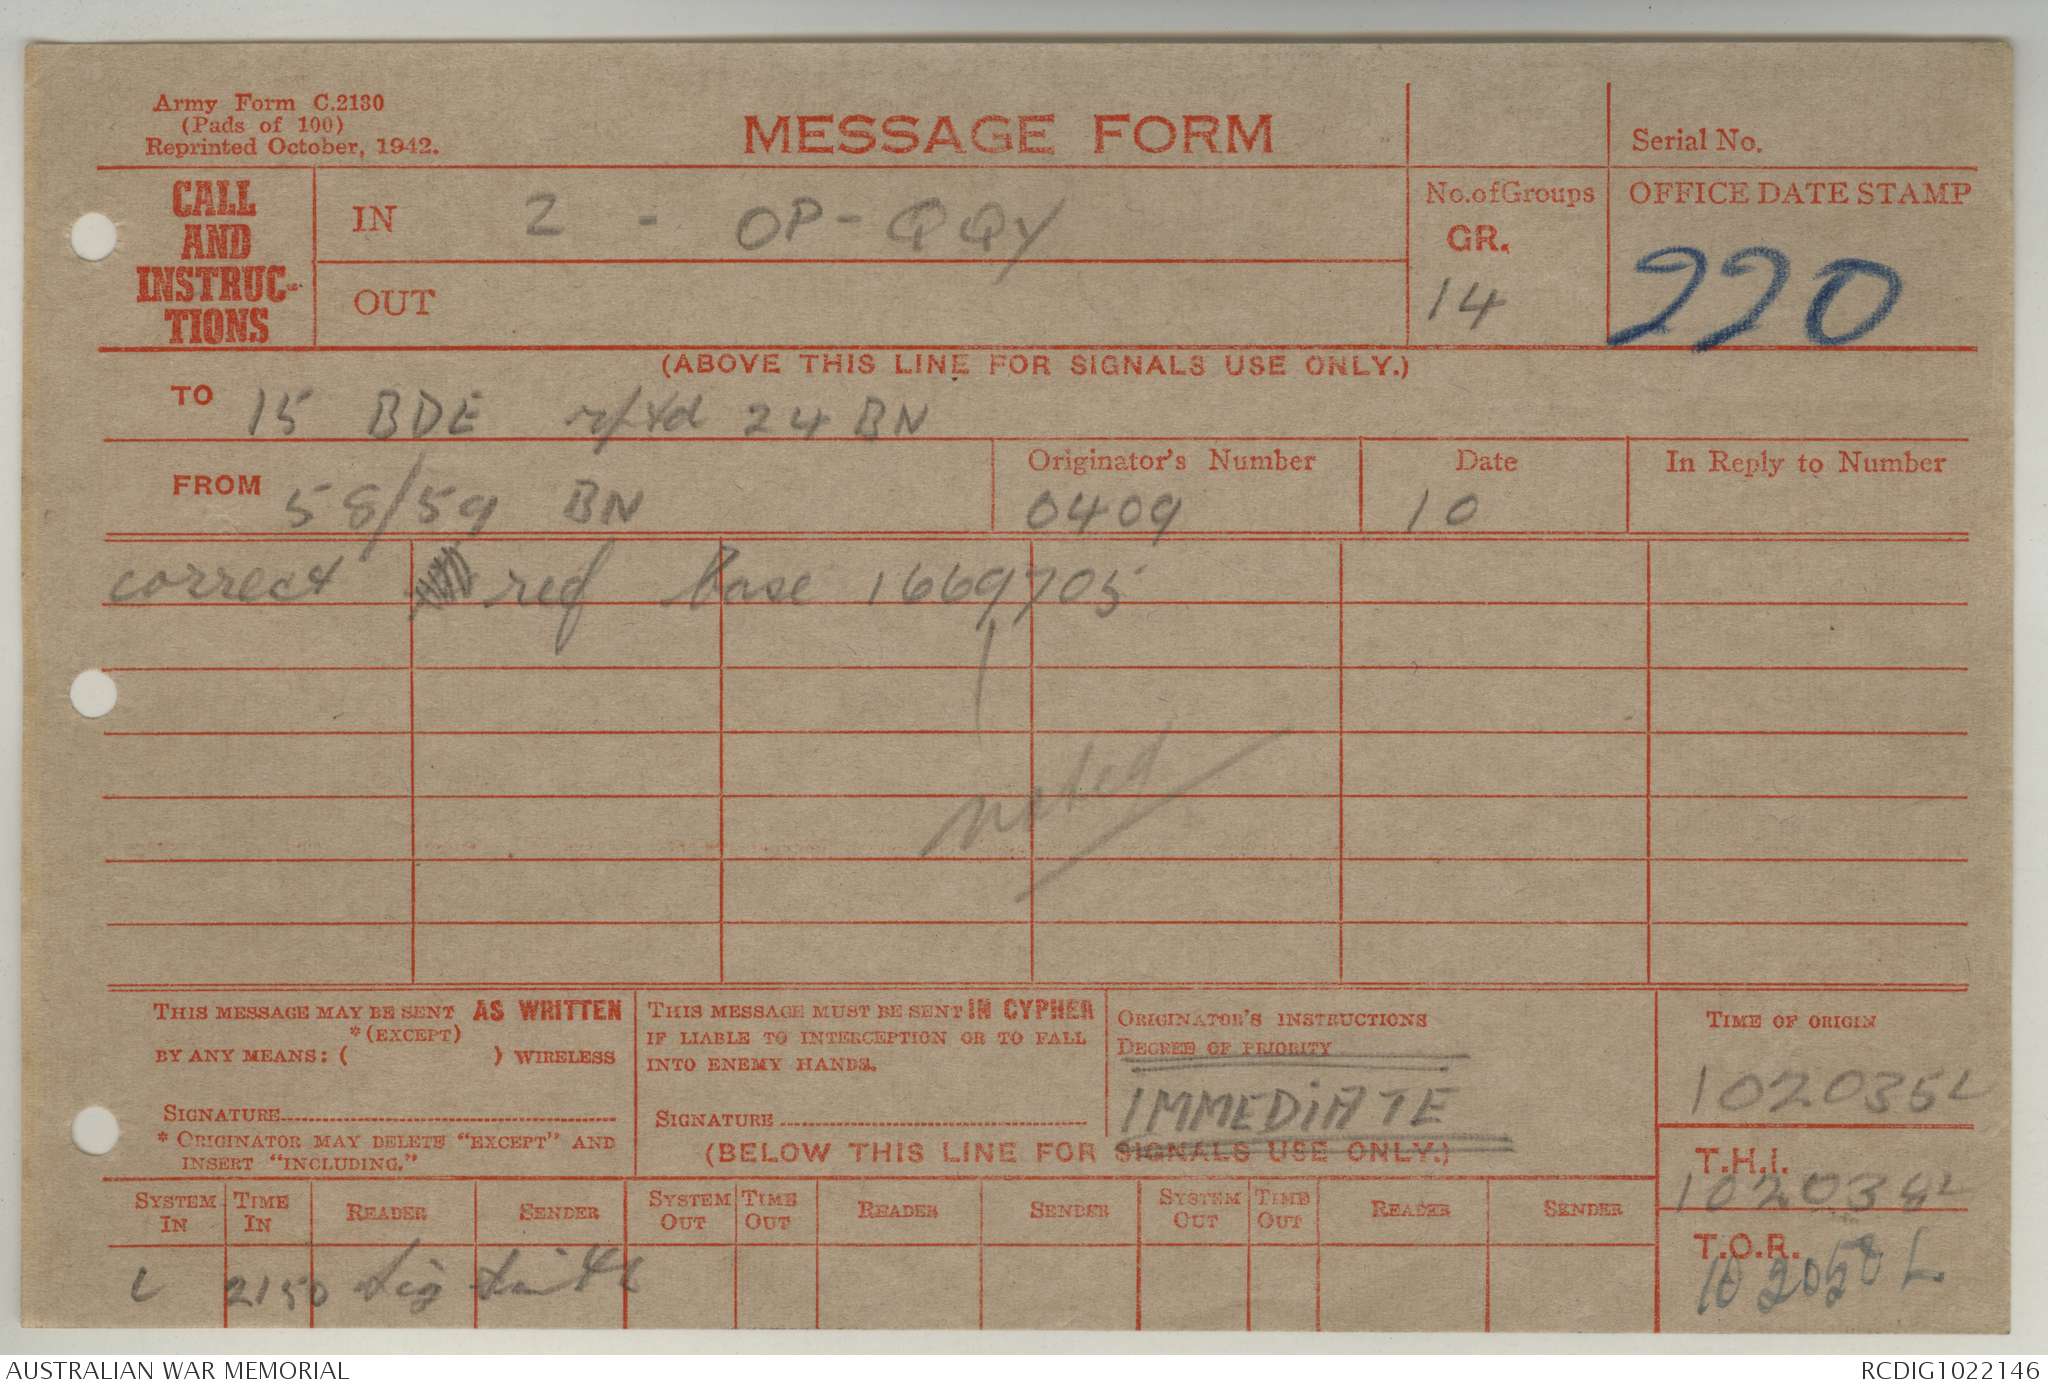 Army Form C.2130
(Pads of 100)
Reprinted October, 1942.
MESSAGE FORM
Serial No.
CALL
AND
INSTRUC-
TIONS
IN 2 - OP - QQY
OUT
No. of Groups
GR.
14
OFFICE DATE STAMP
220
(ABOVE THIS LINE FOR SIGNALS USE ONLY.)
TO 15 BDE rptd 24 BN
FROM 58/59 BN
Originator's Number
0409
Date
10
In Reply to Number
correct ref base 1669705
noted
THIS MESSAGE MAY BE SENT AS WRITTEN
*(EXCEPT)
BY ANY MEANS: ( ) WIRELESS
SIGNATURE
* ORIGINATOR MAY DELETE "EXCEPT" AND
INSERT "INCLUDING."
THIS MESSAGE MUST BE SENT IN CYPHER
IF LIABLE TO INTERCEPTION OR TO FALL
INTO ENEMY HANDS.
SIGNATURE
ORIGINATOR'S INSTRUCTIONS
DEGREE OF PRIORITY
IMMEDIATE
(BELOW THIS LINE FOR SIGNALS USE ONLY.)
TIME OF ORIGIN
102035L
T.H.I.
102038L
T.O.R.
102050L
SYSTEM IN
TIME IN
READER
SENDER
SYSTEM OUT
TIME OUT
READER
SENDER
SYSTEM OUT
TIME OUT
READER
SENDER
L 2150 Sig Smith
AUSTRALIAN WAR MEMORIAL
RCDIG1022146